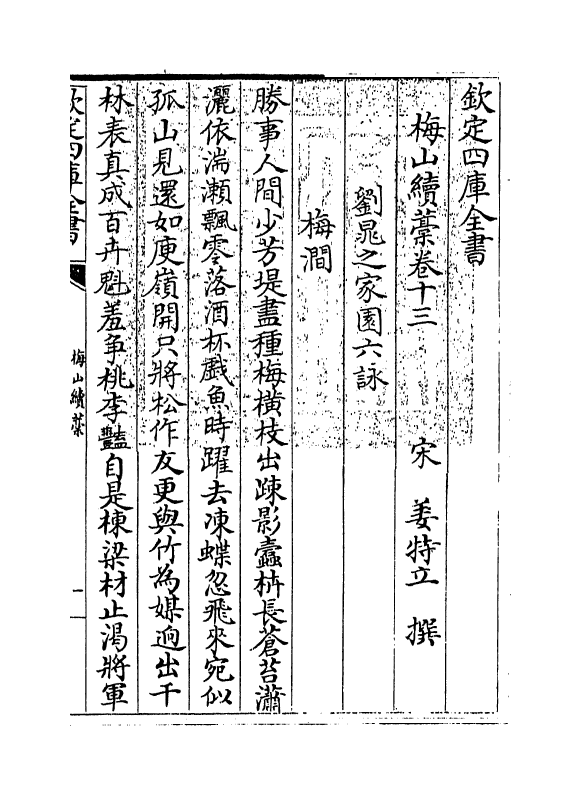 欽定四庫全書
梅山續藁卷十三
宋 姜特立 撰
劉晁之家園六詠
梅澗
勝事人間少芳堤盡種梅橫枝出疎影蠧枿長蒼苔瀟
灑依湍瀨飄零落酒杯戲魚時躍去凍蝶忽飛來宛似
孤山見還如庾嶺開只將松作友更與竹為媒逈出千
林表真成百卉魁羞爭桃李豔自是棟梁材止渴將軍
欽定四庫全書
梅山續藁
一